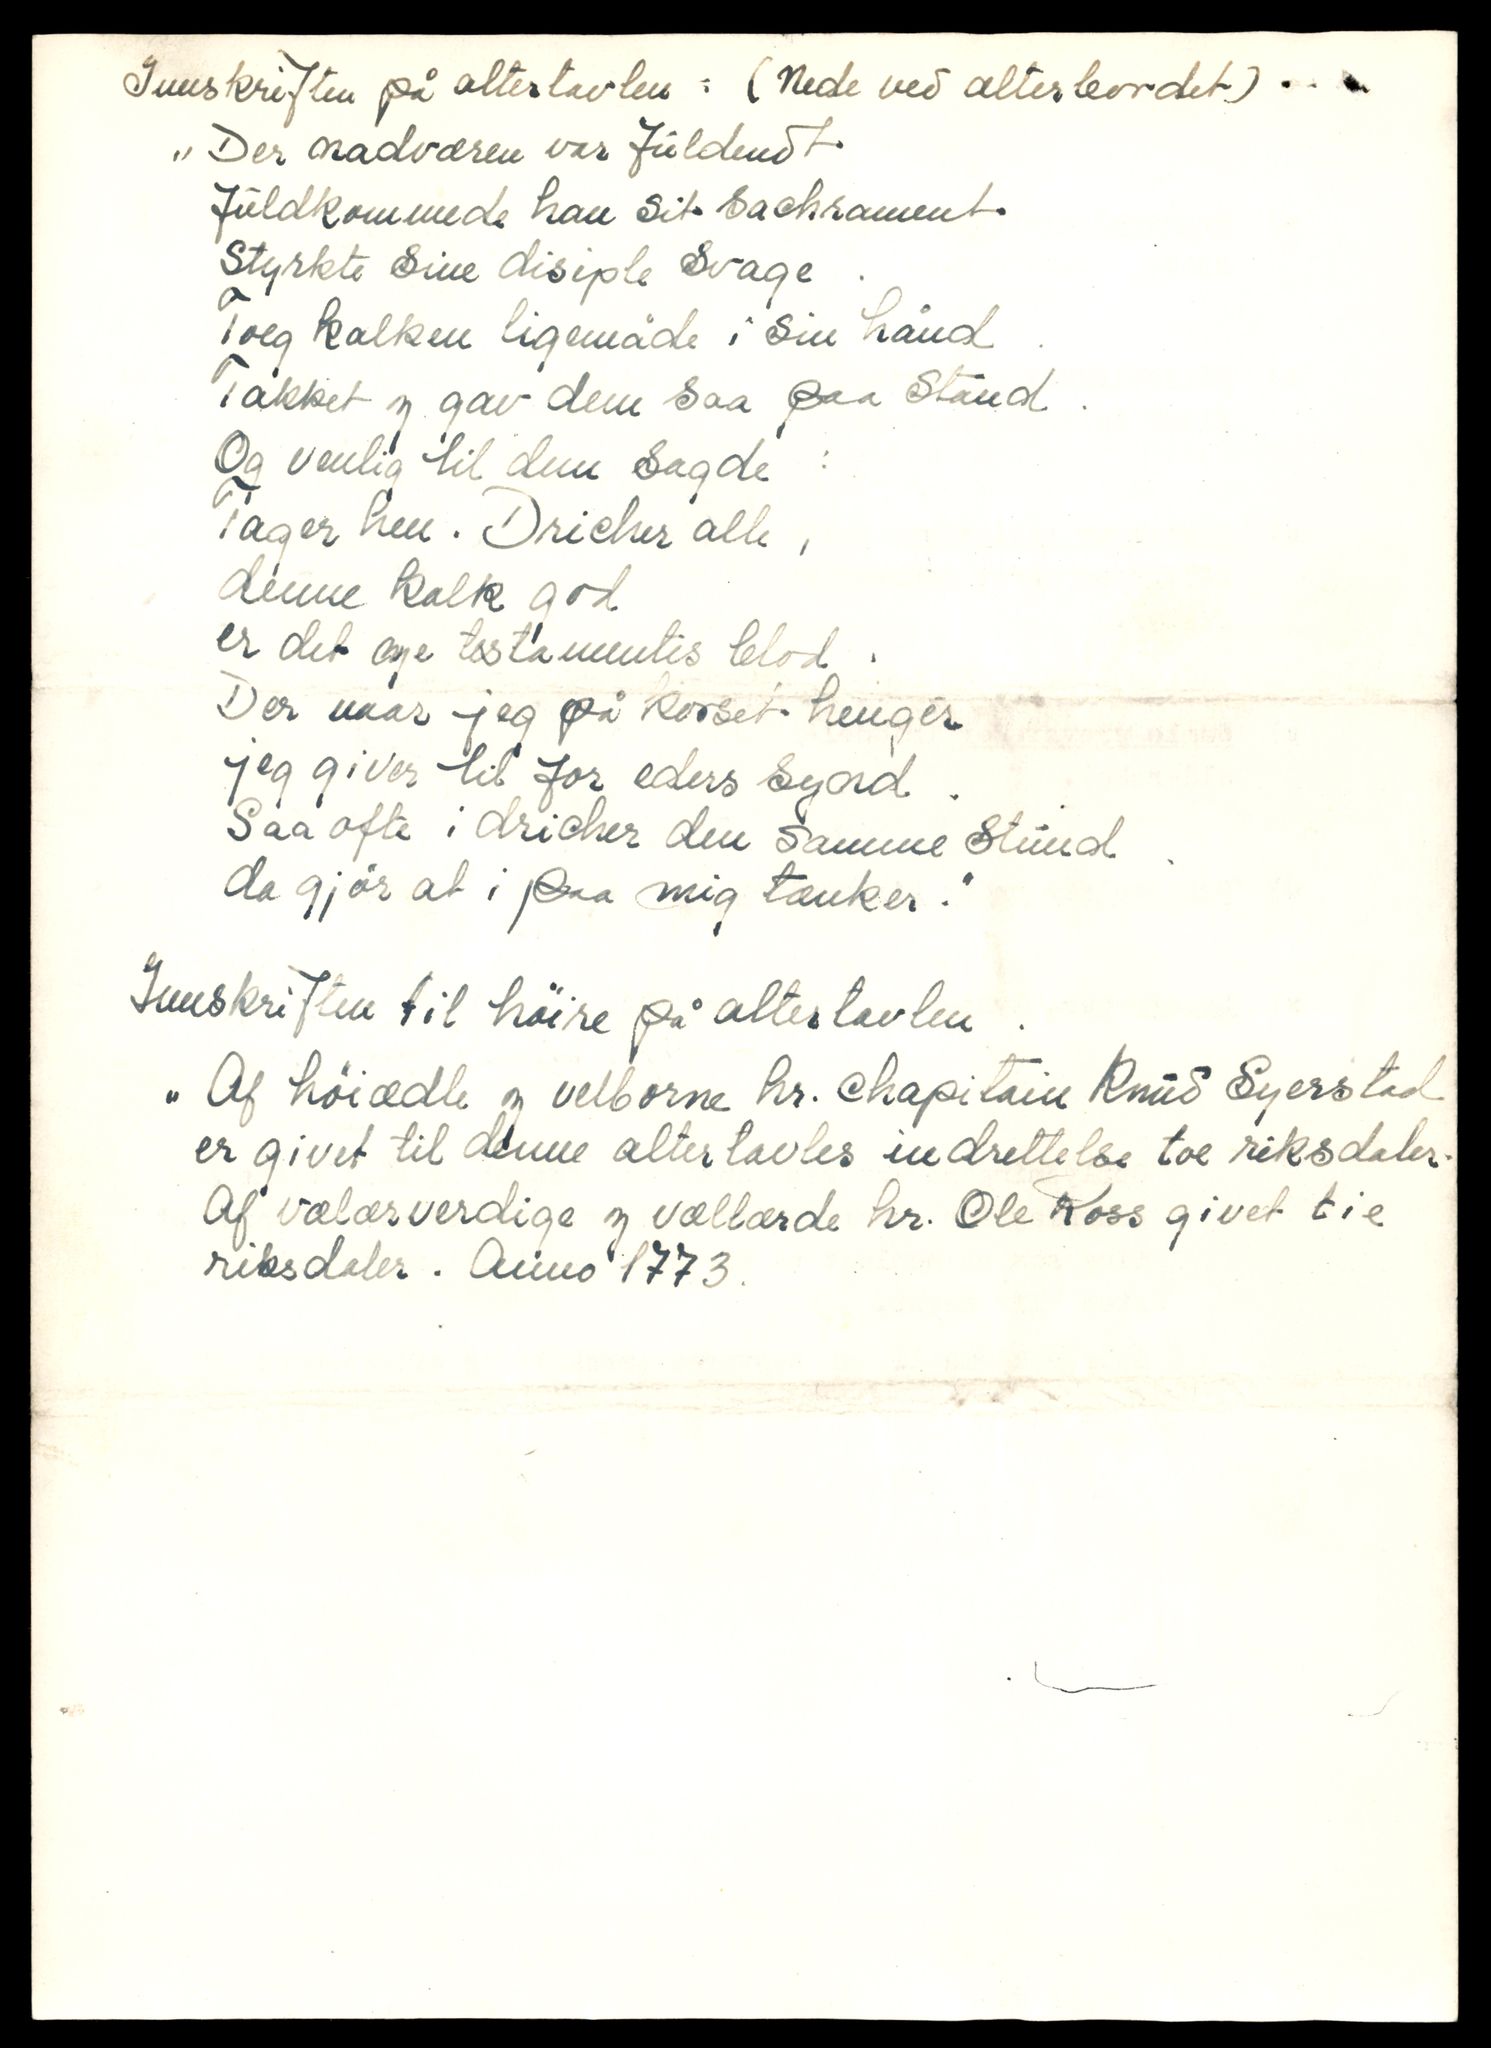 Innskriften på altertavlen: (Nede ved alterbordet) . . .
"Der nadværen var fuldendt.
fuldkommede han sit sachrament.
Styrkte sine disiple svage.
Toeg kalken ligemåde i sin hånd.
Takket og gav dem saa paa stand.
Og venlig til dem sagde:
Tager hen. Dricher alle,
denne kalk god
er det nye testamentis blod.
Der naar jeg på korset henger
jeg giver til for eders synd.
Saa ofte i dricher den samme stund.
da gjör at i paa mig tænker."
Innskriften til höire på altertavlen.
"Af höiædle og velborne hr. chapitain Knud Syerstad
er givet til denne altertavles indrettelse toe riksdaler.
Af vælærverdige og vællærde hr. Ole Ross givet tie
riksdaler. Anno 1773.